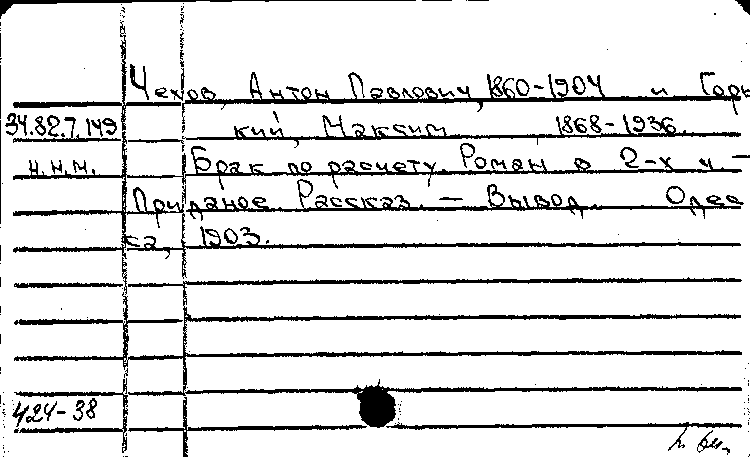 Чехов, Антон Павлович, 1860-1904 и Горь
34.82.7.149 кий, Максим 1868-1936.
н.н.м. Брак по расчету. Роман в 2-х ч. -
Приданое. Рассказ. - Вывод. Одес
са, 1903.
424-38